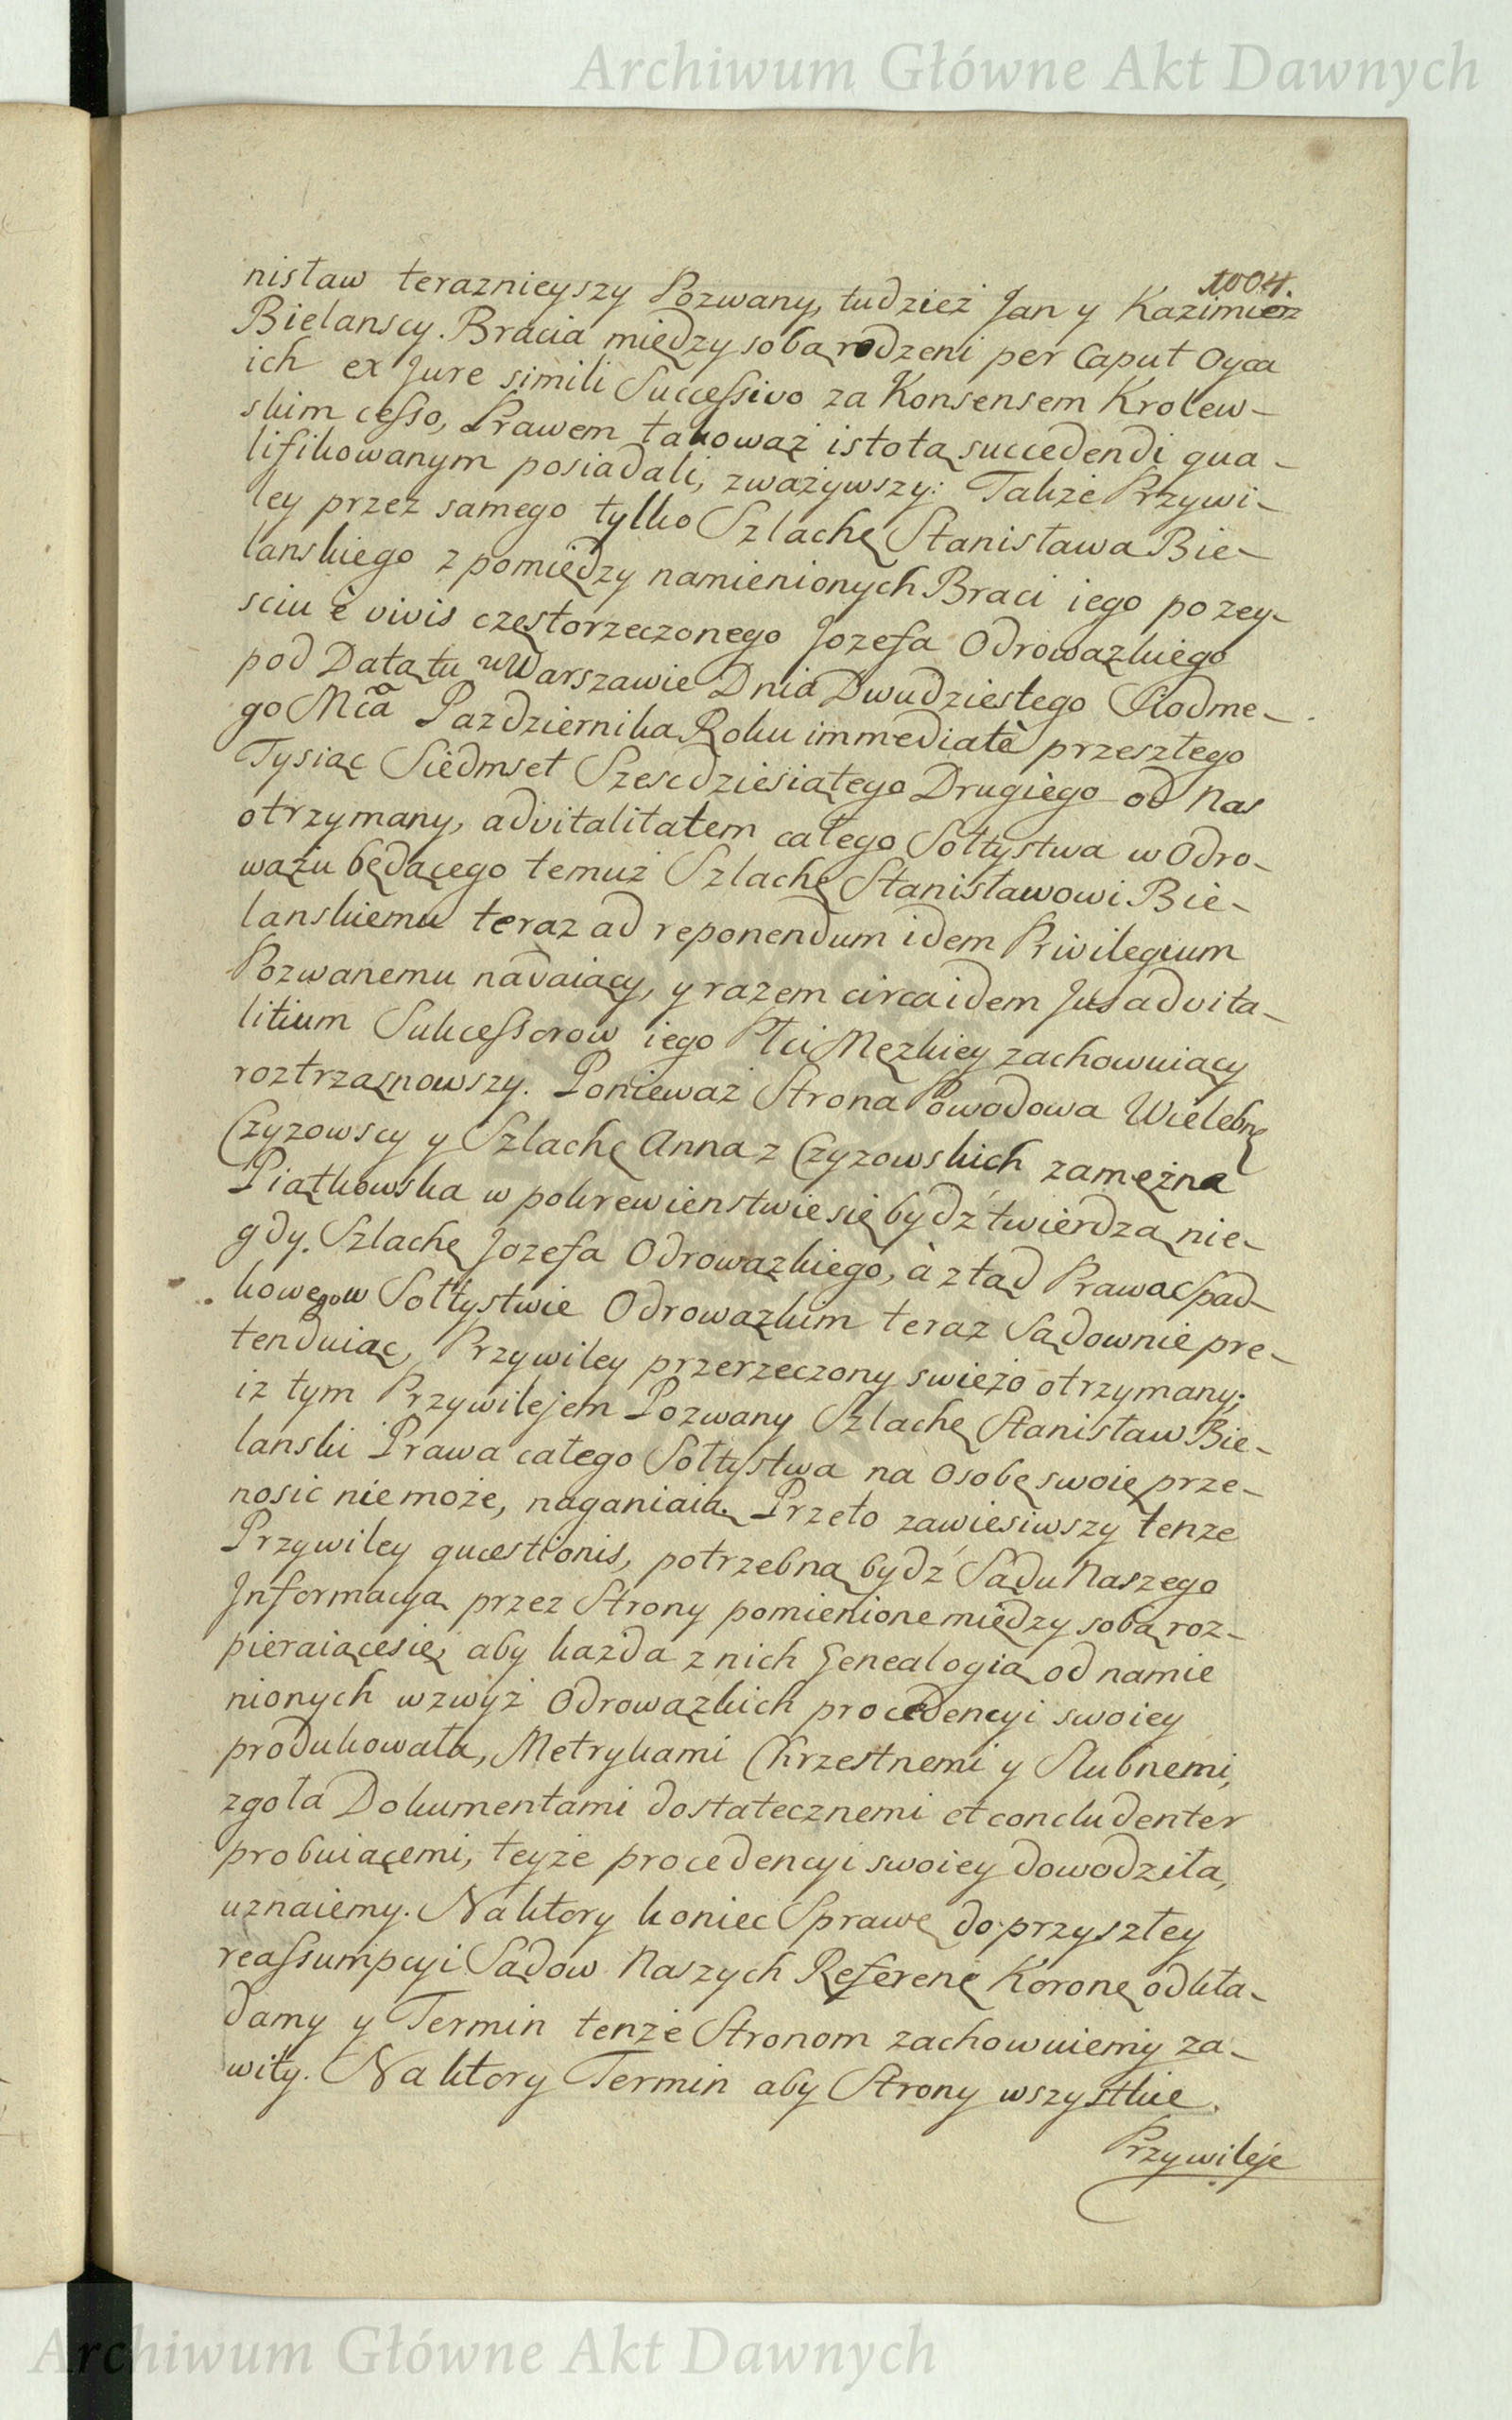 Archiwum Główne Akt Dawnych
1004.
nisław teraznieyszy Pozwany, tudzież Jan y Kazimierz
Bielanscy. Bracia między sobą rodzeni per Caput Oyca
ich ex Jure simili Successivo za Konsensem Krolew-
skim cesso, Prawem takowąż istotą succedendi qua-
lifikowanym posiadali, zważywszy: Także Przywi-
ley przez samego tylko Szlachę Stanisława Bie-
lanskiego z pomiędzy namienionych Braci iego po zey-
sciu è vivis częstorzeczonego Jozefa Odrowązkiego
pod Datą tu w Warszawie Dnia Dwudziestego Siodme-
go Mca Pazdziernika Roku immediatè przeszłego
Tysiąc Siedmset Szescdziesiątego Drugiego od Nas
otrzymany, advitalitatem całego Sołtystwa w Odro-
wążu będącego temuż Szlachę Stanisławowi Bie-
lanskiemu teraz ad reponendum idem Privilegium
Pozwanemu nadaiący, y razem circa idem Jus advita-
litium Sukcessorow iego Płci Męzkiey zachowuiący
roztrząsnowszy. Ponieważ Strona Powodowa Wielebny
Czyzowscy y Szlachę Anna z Czyzowskich zamężna
Piątkowska w pokrewienstwie się bydź twierdzą nie-
gdy. Szlachę Jozefa Odrowązkiego, à ztąd Prawa Spad-
kowego w Sołtystwie Odrowązkim teraz Sądownie pre-
tenduiąc, Przywiley przerzeczony swieżo otrzymany;
iż tym Przywilejem Pozwany Szlachę Stanisław Bie-
lanski Prawa całego Sołtystwa na Osobę swoię prze-
nosic nie może, naganiaią. Przeto zawiesiwszy tenze
Przywiley quæstionis, potrzebną bydź Sądu Naszego
Informacyą przez Strony pomienione między sobą roz-
pieraiącesię, aby każda z nich Genealogią od namie
nionych wzwyż Odrowązkich procedencyi swoiey
produkowała, Metrykami Chrzestnemi y Slubnemi,
zgoła Dokumentami dostatecznemi et concludenter
probuiącemi, teyże procedencyi swoiey dowodziła,
uznaiemy. Na ktory koniec Sprawę do przyszłey
reassumpcyi Sądow Naszych Referenę Koronę odkła-
damy y Termin tenże Stronom zachowuiemy za-
wity. Na ktory Termin aby Strony wszystkie
Przywileje
Archiwum Główne Akt Dawnych